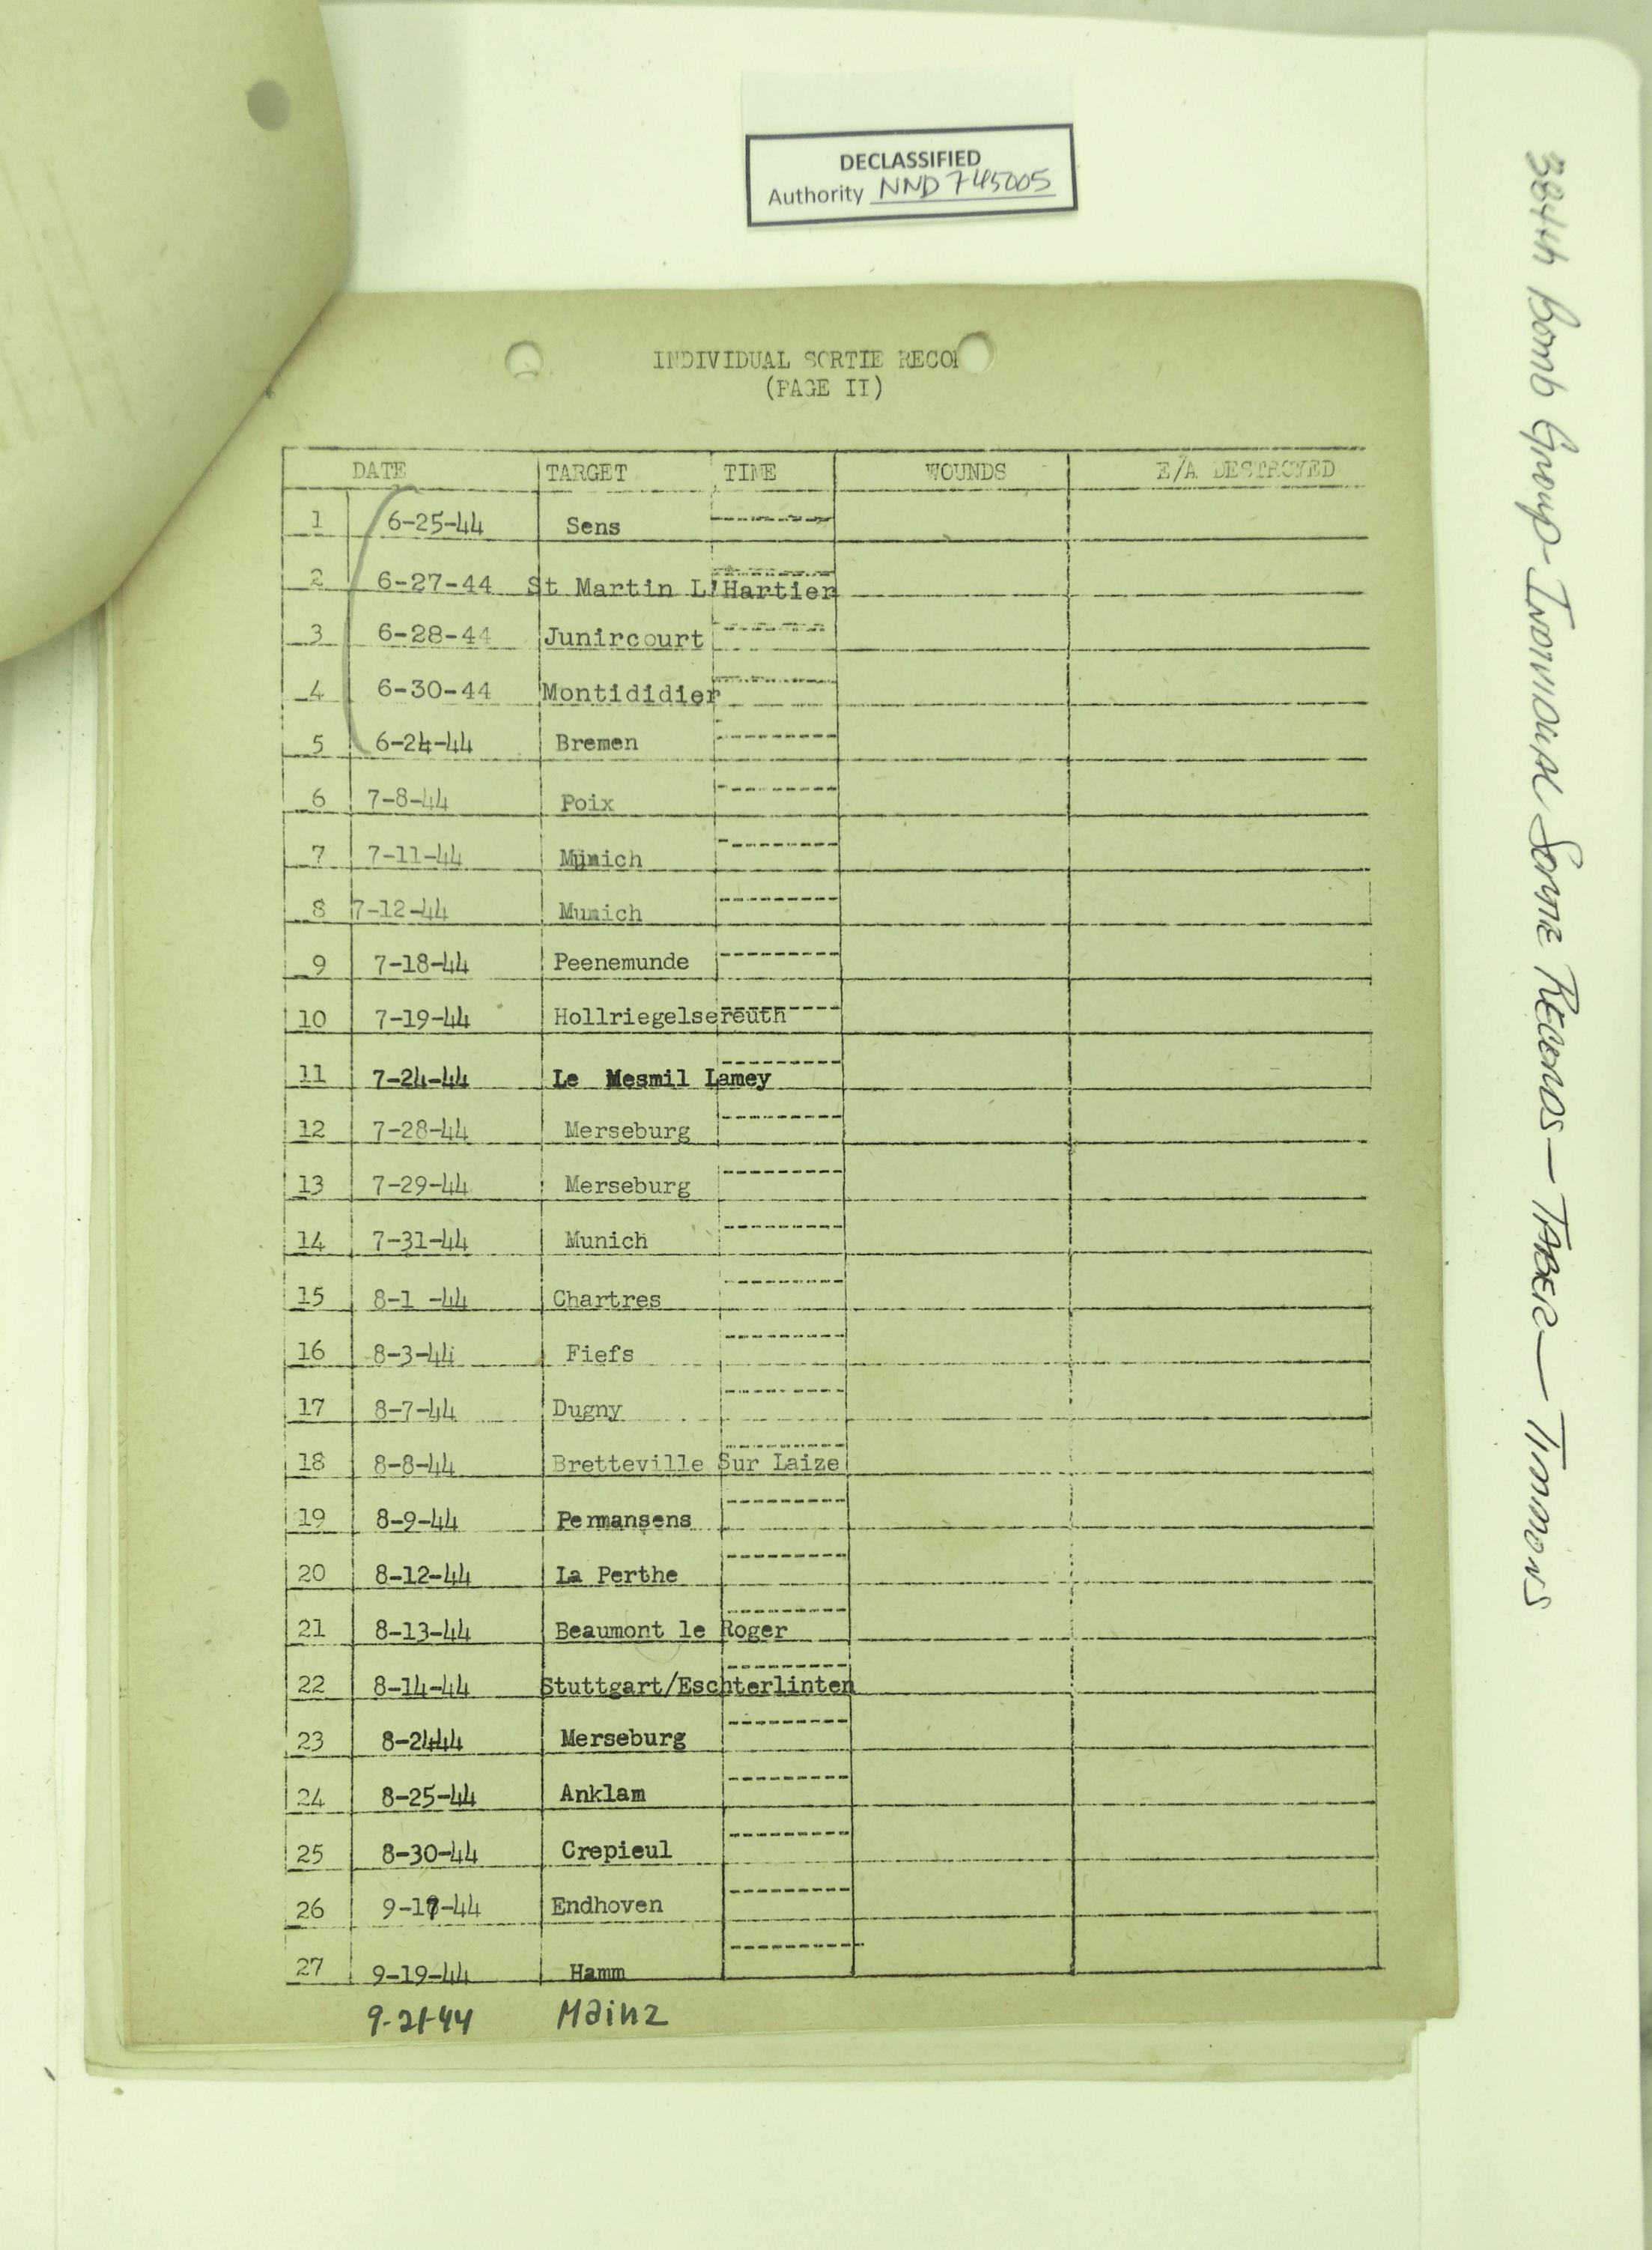 DECLASSIFIED
Authority NND 745005
INDIVIDUAL SORTIE RECOR
(PAGE II)
DATE TARGET TIME WOUNDS E/A DESTROYED
1 6-25-44 Sens ---------
2 6-27-44 St Martin L'Hartier ---------
3 6-28-44 Junircourt ---------
4 6-30-44 Montididier ---------
5 6-24-44 Bremen ---------
6 7-8-44 Poix ---------
7 7-11-44 Munich ---------
8 7-12-44 Munich ---------
9 7-18-44 Peenemunde ---------
10 7-19-44 Hollriegelsereuth ---------
11 7-24-44 Le Mesmil Lamey ---------
12 7-28-44 Merseburg ---------
13 7-29-44 Merseburg ---------
14 7-31-44 Munich ---------
15 8-1 -44 Chartres ---------
16 8-3-44 Fiefs ---------
17 8-7-44 Dugny ---------
18 8-8-44 Bretteville Sur Laize ---------
19 8-9-44 Permansens ---------
20 8-12-44 La Perthe ---------
21 8-13-44 Beaumont le Roger ---------
22 8-14-44 Stuttgart/Eschterlinten ---------
23 8-2444 Merseburg ---------
24 8-25-44 Anklam ---------
25 8-30-44 Crepieul ---------
26 9-17-44 Endhoven ---------
27 9-19-44 Hamm ---------
9-21-44 Mainz
384th Bomb Group - Individual Sortie Records - TABER - Timmons